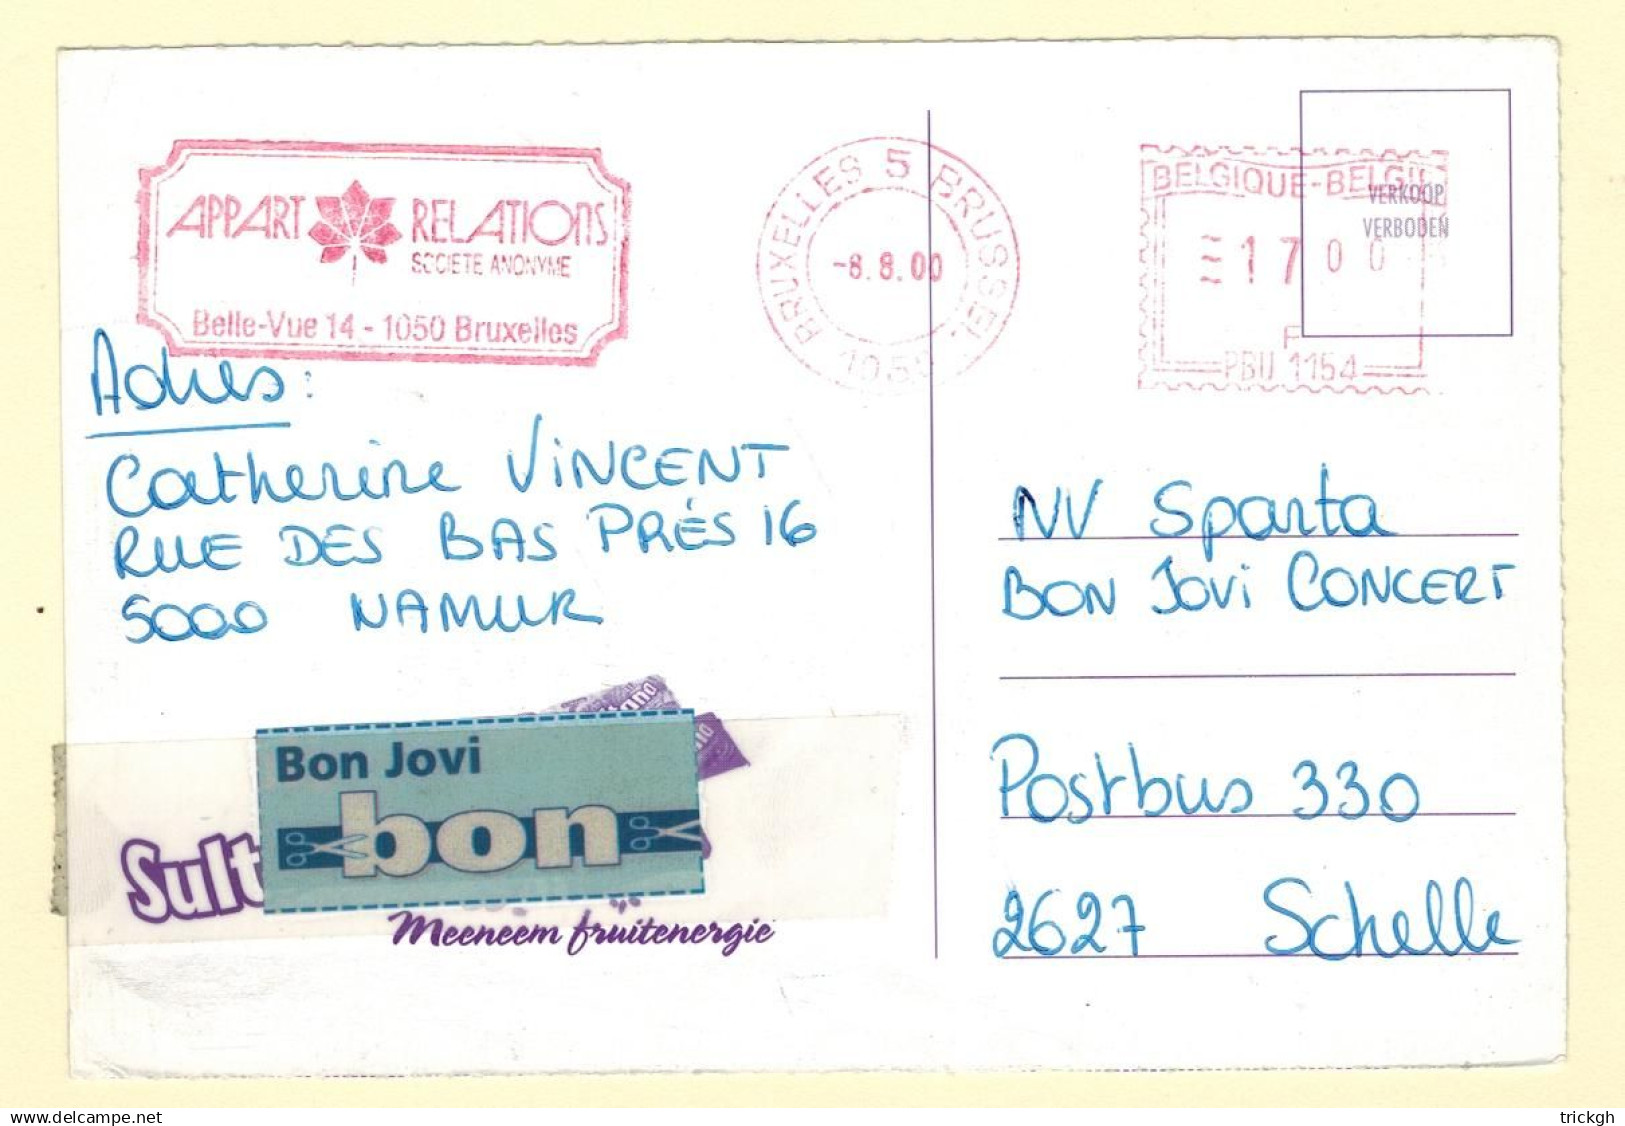 APPART RELATIONS
SOCIETE ANONYME
Belle-Vue 14 - 1050 Bruxelles
BRUXELLES 5 BRUSSEL
-8.8.00
1050
BELGIQUE-BELGIE
1700
F
PBU 1154
VERKOOP
VERBODEN
Adres:
Catherine VINCENT
RUE DES BAS PRÉS 16
5000 NAMUR
NV Sparta
BON JOVI CONCERT
Postbus 330
2627 Schelle
Bon Jovi
bon
Sult
Meeneem fruitenergie
trickgh